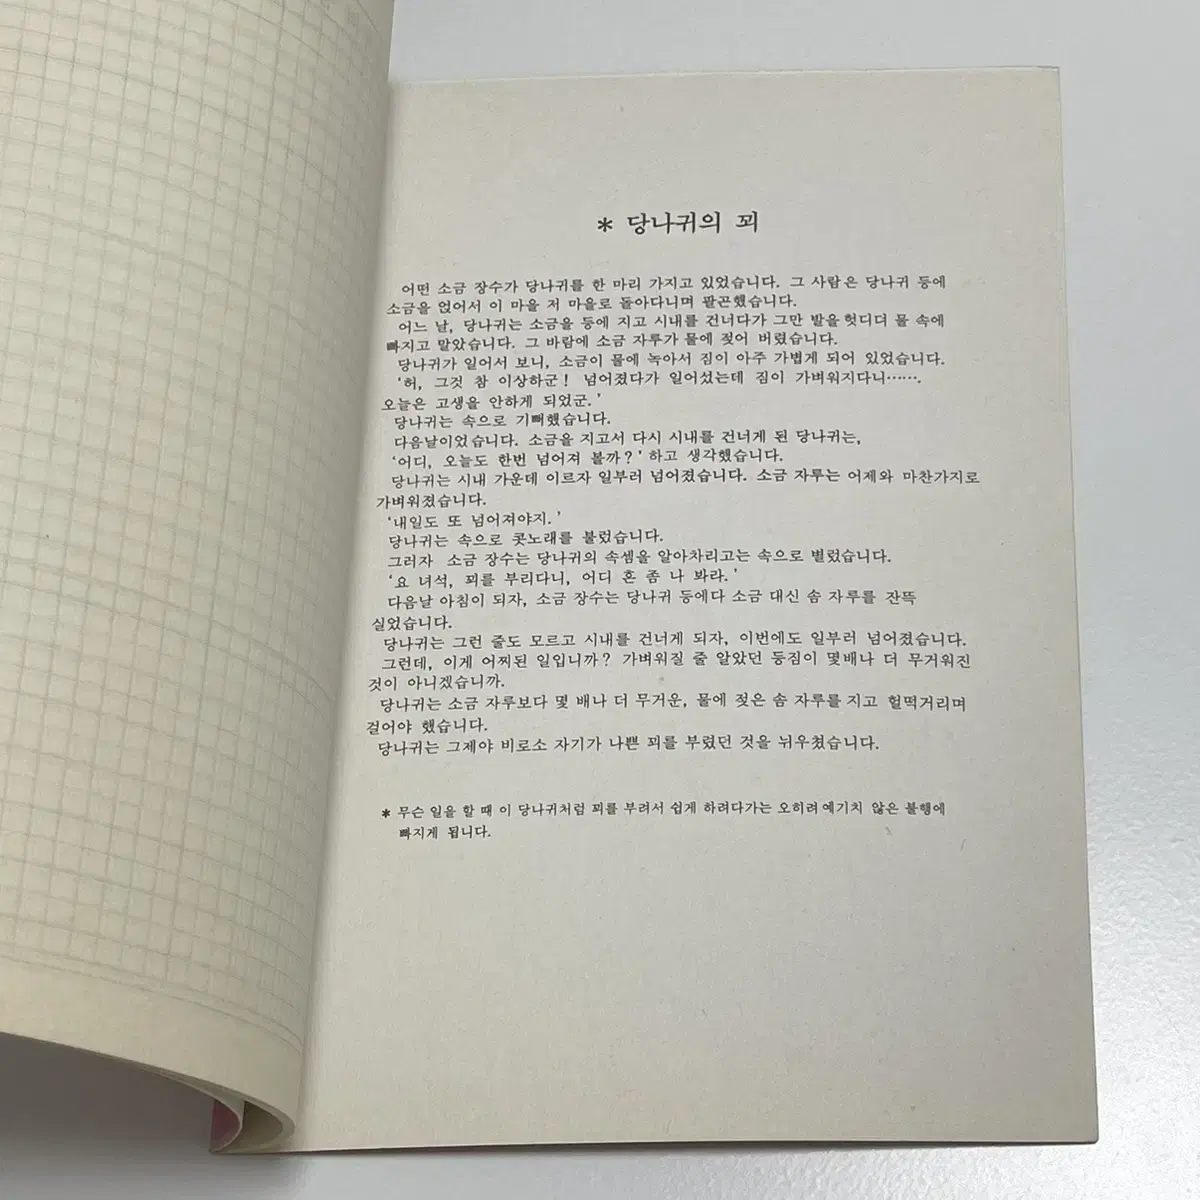 * 당나귀의 꾀
어떤 소금 장수가 당나귀를 한 마리 가지고 있었습니다. 그 사람은 당나귀 등에
소금을 얹어서 이 마을 저 마을로 돌아다니며 팔곤했습니다.
어느 날, 당나귀는 소금을 등에 지고 시내를 건너다가 그만 발을 헛디뎌 물 속에
빠지고 말았습니다. 그 바람에 소금 자루가 물에 젖어 버렸습니다.
당나귀가 일어서 보니, 소금이 물에 녹아서 짐이 아주 가볍게 되어 있었습니다.
'허, 그것 참 이상하군! 넘어졌다가 일어섰는데 짐이 가벼워지다니…….
오늘은 고생을 안하게 되었군.'
당나귀는 속으로 기뻐했습니다.
다음날이었습니다. 소금을 지고서 다시 시내를 건너게 된 당나귀는,
'어디, 오늘도 한번 넘어져 볼까?' 하고 생각했습니다.
당나귀는 시내 가운데 이르자 일부러 넘어졌습니다. 소금 자루는 어제와 마찬가지로
가벼워졌습니다.
'내일도 또 넘어져야지.'
당나귀는 속으로 콧노래를 불렀습니다.
그러자 소금 장수는 당나귀의 속셈을 알아차리고는 속으로 별렀습니다.
'요 녀석, 꾀를 부리다니, 어디 혼 좀 나 봐라.'
다음날 아침이 되자, 소금 장수는 당나귀 등에다 소금 대신 솜 자루를 잔뜩
실었습니다.
당나귀는 그런 줄도 모르고 시내를 건너게 되자, 이번에도 일부러 넘어졌습니다.
그런데, 이게 어찌된 일입니까? 가벼워질 줄 알았던 등짐이 몇배나 더 무거워진
것이 아니겠습니까.
당나귀는 소금 자루보다 몇 배나 더 무거운, 물에 젖은 솜 자루를 지고 헐떡거리며
걸어야 했습니다.
당나귀는 그제야 비로소 자기가 나쁜 꾀를 부렸던 것을 뉘우쳤습니다.
* 무슨 일을 할 때 이 당나귀처럼 꾀를 부려서 쉽게 하려다가는 오히려 예기치 않은 불행에
빠지게 됩니다.